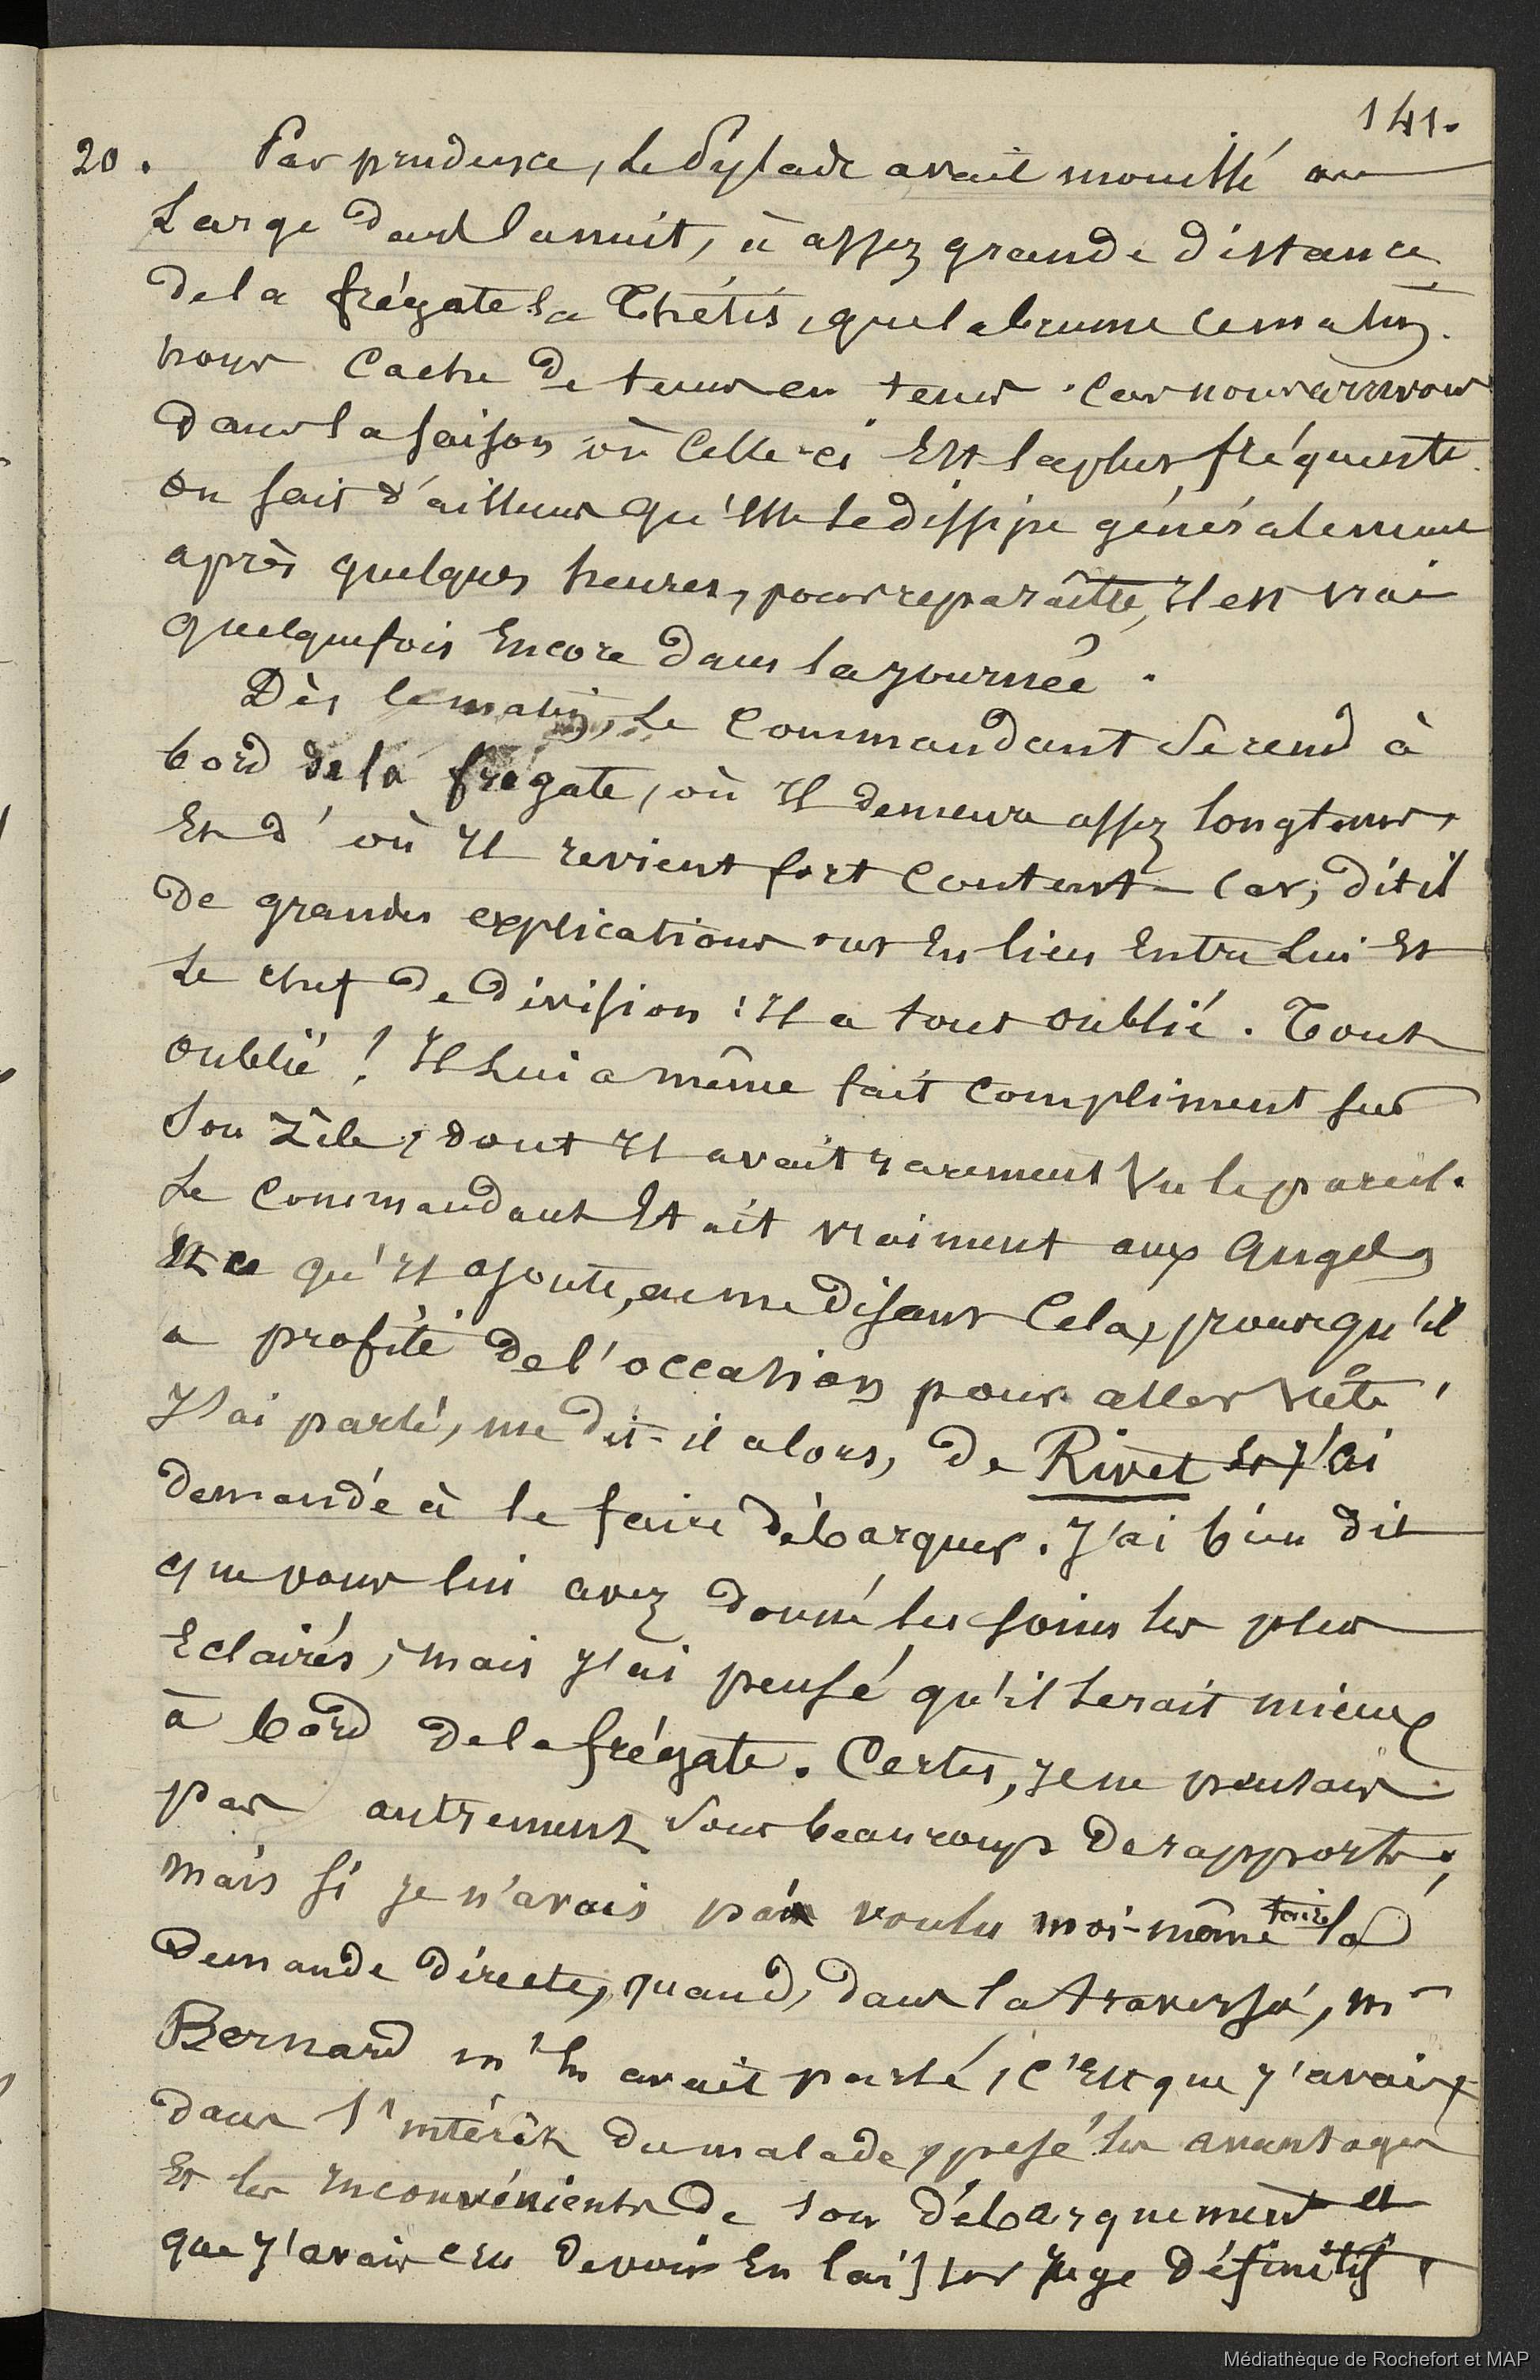 141.
20. Par prudence, le Pylade avait mouillé au
large dans la nuit, à assez grande distance
de la frégate la Thétis, que la brume ce matin
nous cache de tems en tems. Car nous arrivons
dans la saison où celle-ci est la plus fréquente.
On sait d'ailleurs qu'elle se dissipe généralement
après quelques heures, pour reparaître, il est vrai
quelquefois encore dans la journée.
Dès le matin, le Commandant se rend à
bord de la frégate, où il demeura assez longtems,
et d'où il revient fort content - Car, dit il
de grandes explications ont eu lieu entre lui et
le chef de division : il a tout oublié. Tout
oublié ! Il lui a même fait compliment sur
son zèle, dont il avait rarement vu le pareil.
Le Commandant était vraiment aux anges
et ce qu'il ajoute, en me disant cela, prouve qu'il
a profité de l'occasion pour aller vite !
J'ai parlé, me dit-il alors, de Rivet et j'ai
demandé à le faire débarquer. J'ai bien dit
que vous lui avez donné les soins les plus
éclairés, mais j'ai pensé qu'il serait mieux
à bord de la frégate. Certes, je ne pensais
pas autrement sous beaucoup de rapports ;
mais si je n'avais pas voulu moi-même faire la
demande directe, quand, dans la traversée, mr
Bernard m'en avait parlé, c'est que j'avais
dans l'intérêt du malade, pesé les avantages
et les inconvénients de son débarquement et
que j'avais cru devoir en laisser juge définitif.
Médiathèque de Rochefort et MAP